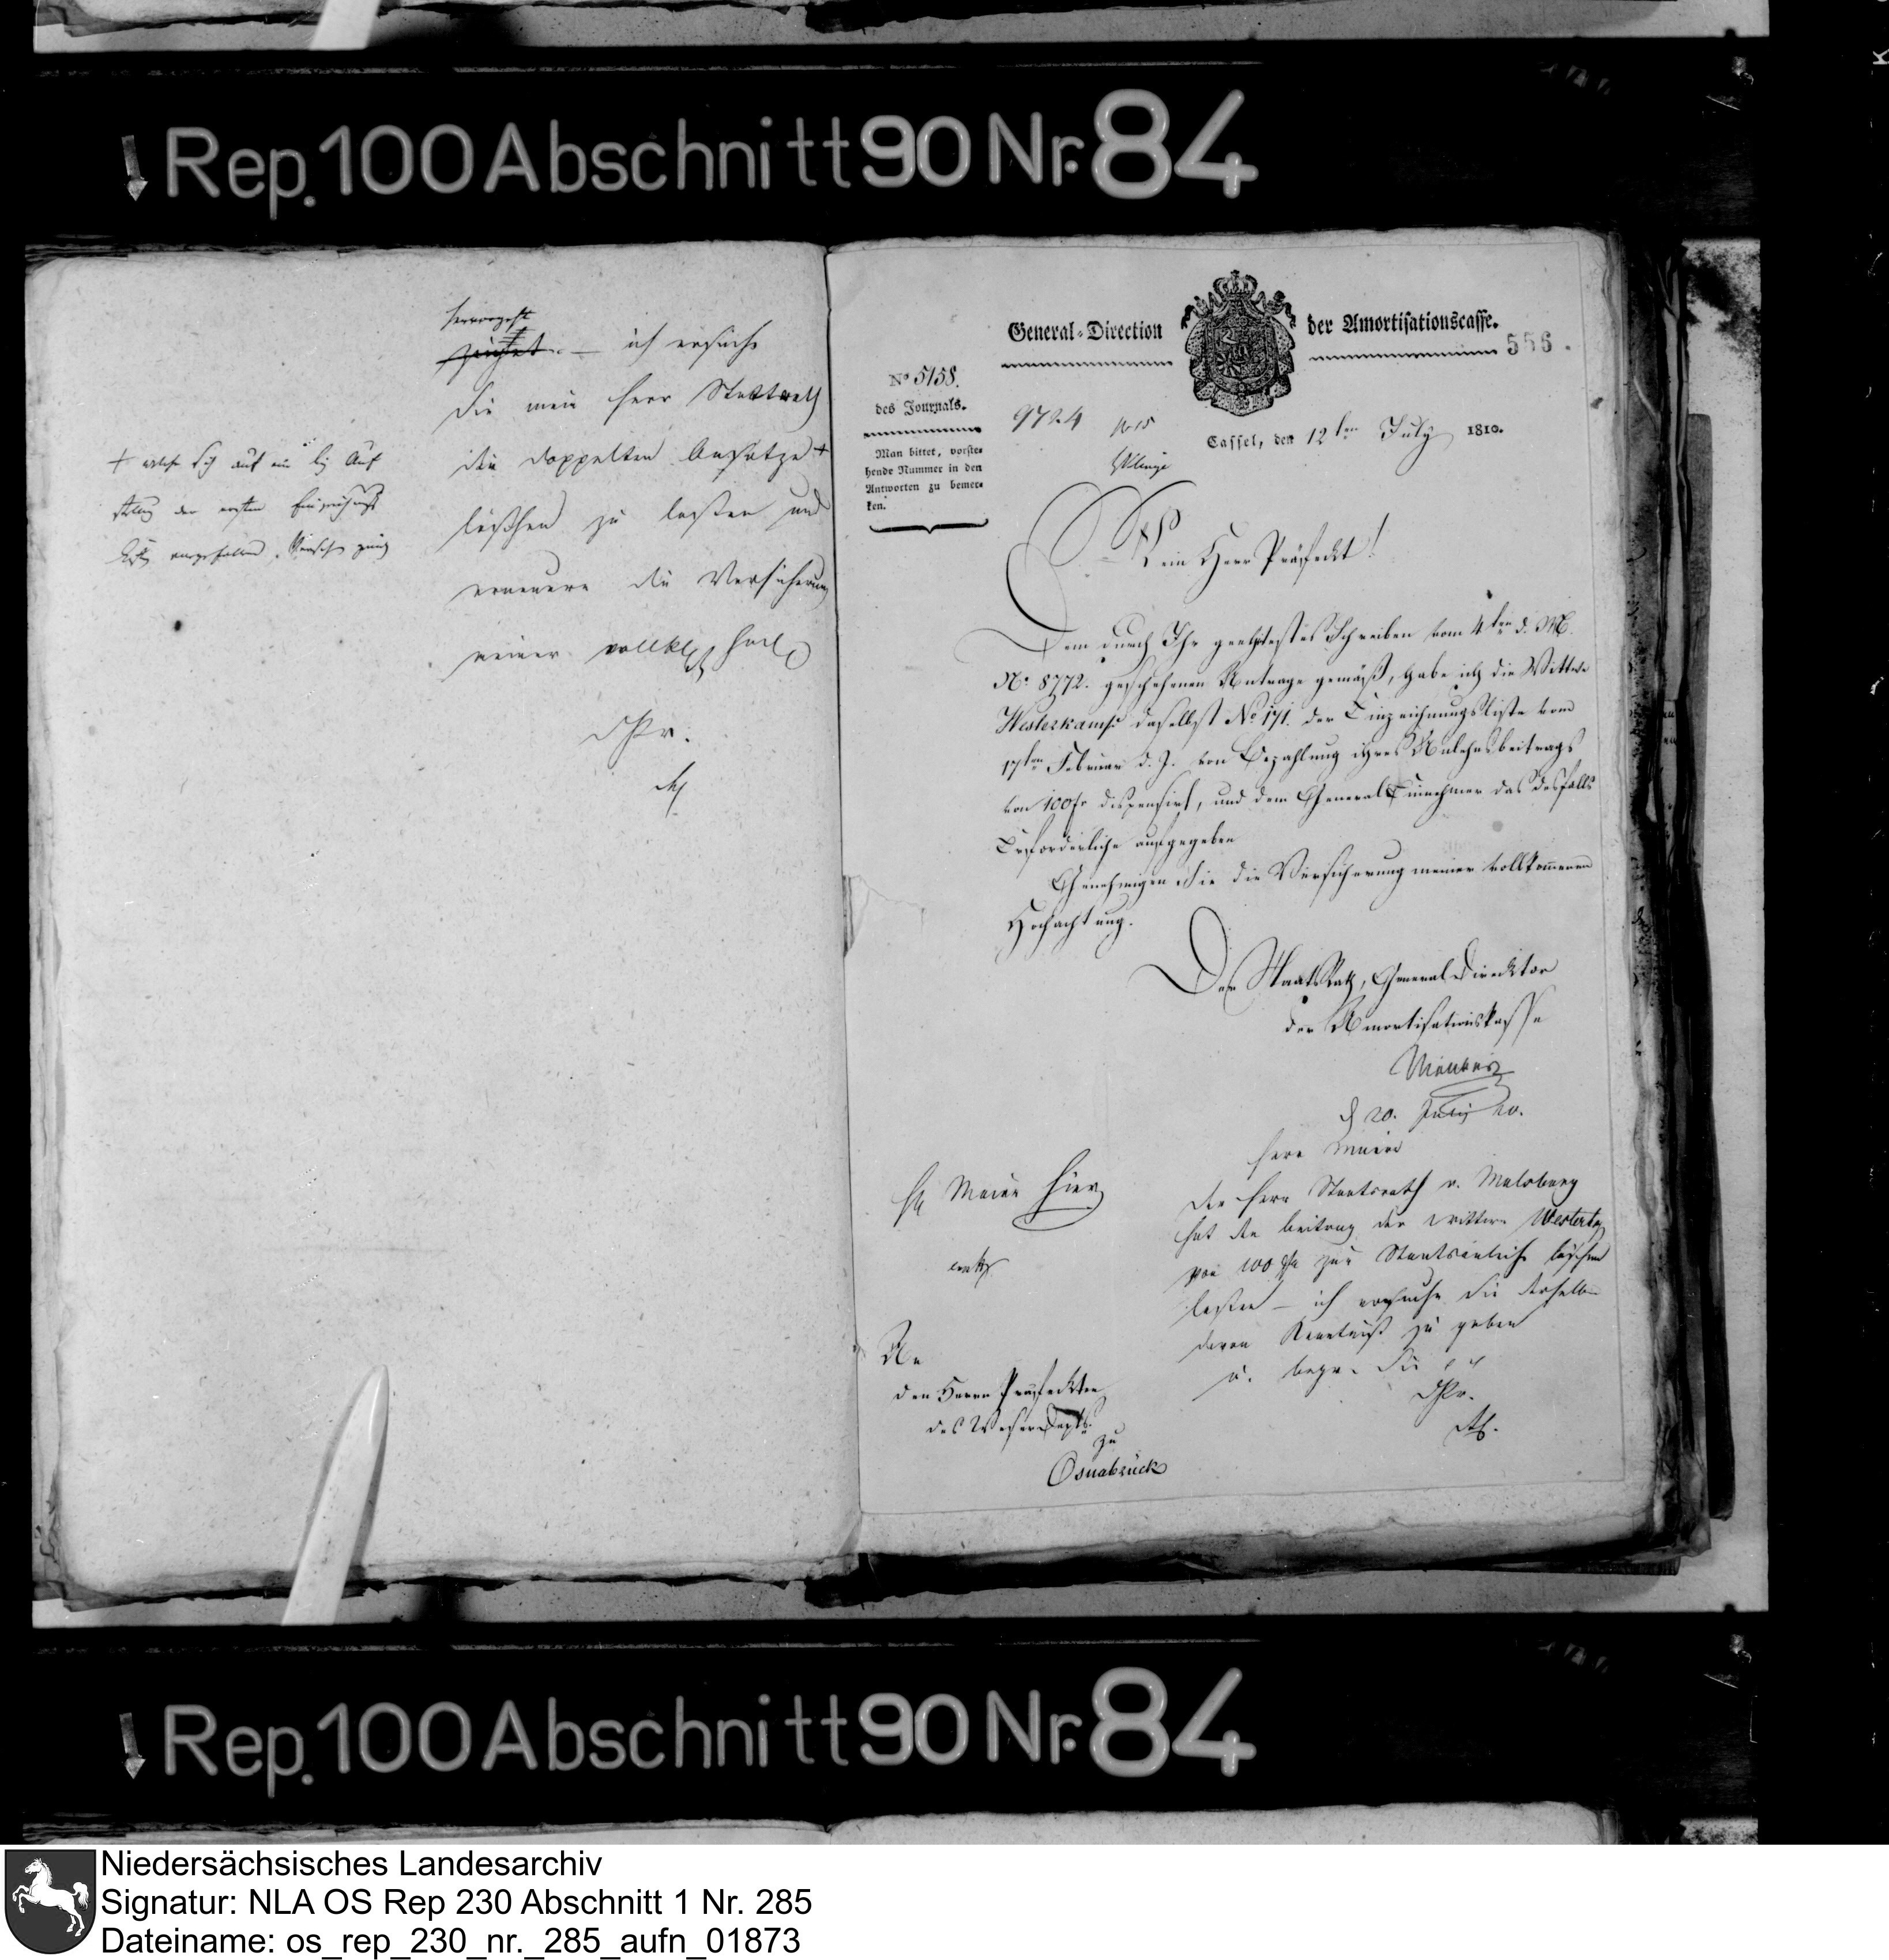 Rep. 100 Abschnitt 90 Nr. 84
hervorgeht
zeichnet. — ich ersuche
Sie mein Herr Staatsrath
die doppelten Ansätze +
löschen zu lassen und
erneuere die Versicherung
meiner vollk Hoch
DPr.
+ welche sich auf
der ersten
General-Direction der Amortisationscasse.
556.
No 5158.
des Journals.
Man bittet, vorste-
hende Nummer in den
Antworten zu bemer-
ken.
9724
Cassel, den 12ten July 1810.
Mein Herr Präfeckt!
Dem durch Ihr geehrtestes Schreiben vom 4ten d. M.
No. 8772. geschehenen Antrage gemäß, habe ich die Wittwe
Westerkamp daselbst No 171. der Einzeichnungsliste vom
17ten Februar d. J. von Bezahlung ihres Anlehnsbeitrags
von 100 fr dispensirt, und dem General Einnehmer das desfalls
Erforderliche aufgegeben
Genehmigen Sie die Versicherung meiner vollkom̄enen
Hochachtung.
Der StaatsRath, General Direcktor
der Amortisationskasse
d 20. July 10.
Herr Maire
Der Herr Staatsrath v. Malsburg
hat den Beitrag der Wittwe Westerkp
von 100 fr zur Staatsanleihe löschen
lassen — ich ersuche Sie derselben
davon Kenntniß zu geben
u.
DPr.
H Maire hier
An
den Herrn Präfeckten
des Weser Depts.
zu
Osnabrück
Rep. 100 Abschnitt 90 Nr. 84
Niedersächsisches Landesarchiv
Signatur: NLA OS Rep 230 Abschnitt 1 Nr. 285
Dateiname: os_rep_230_nr._285_aufn_01873